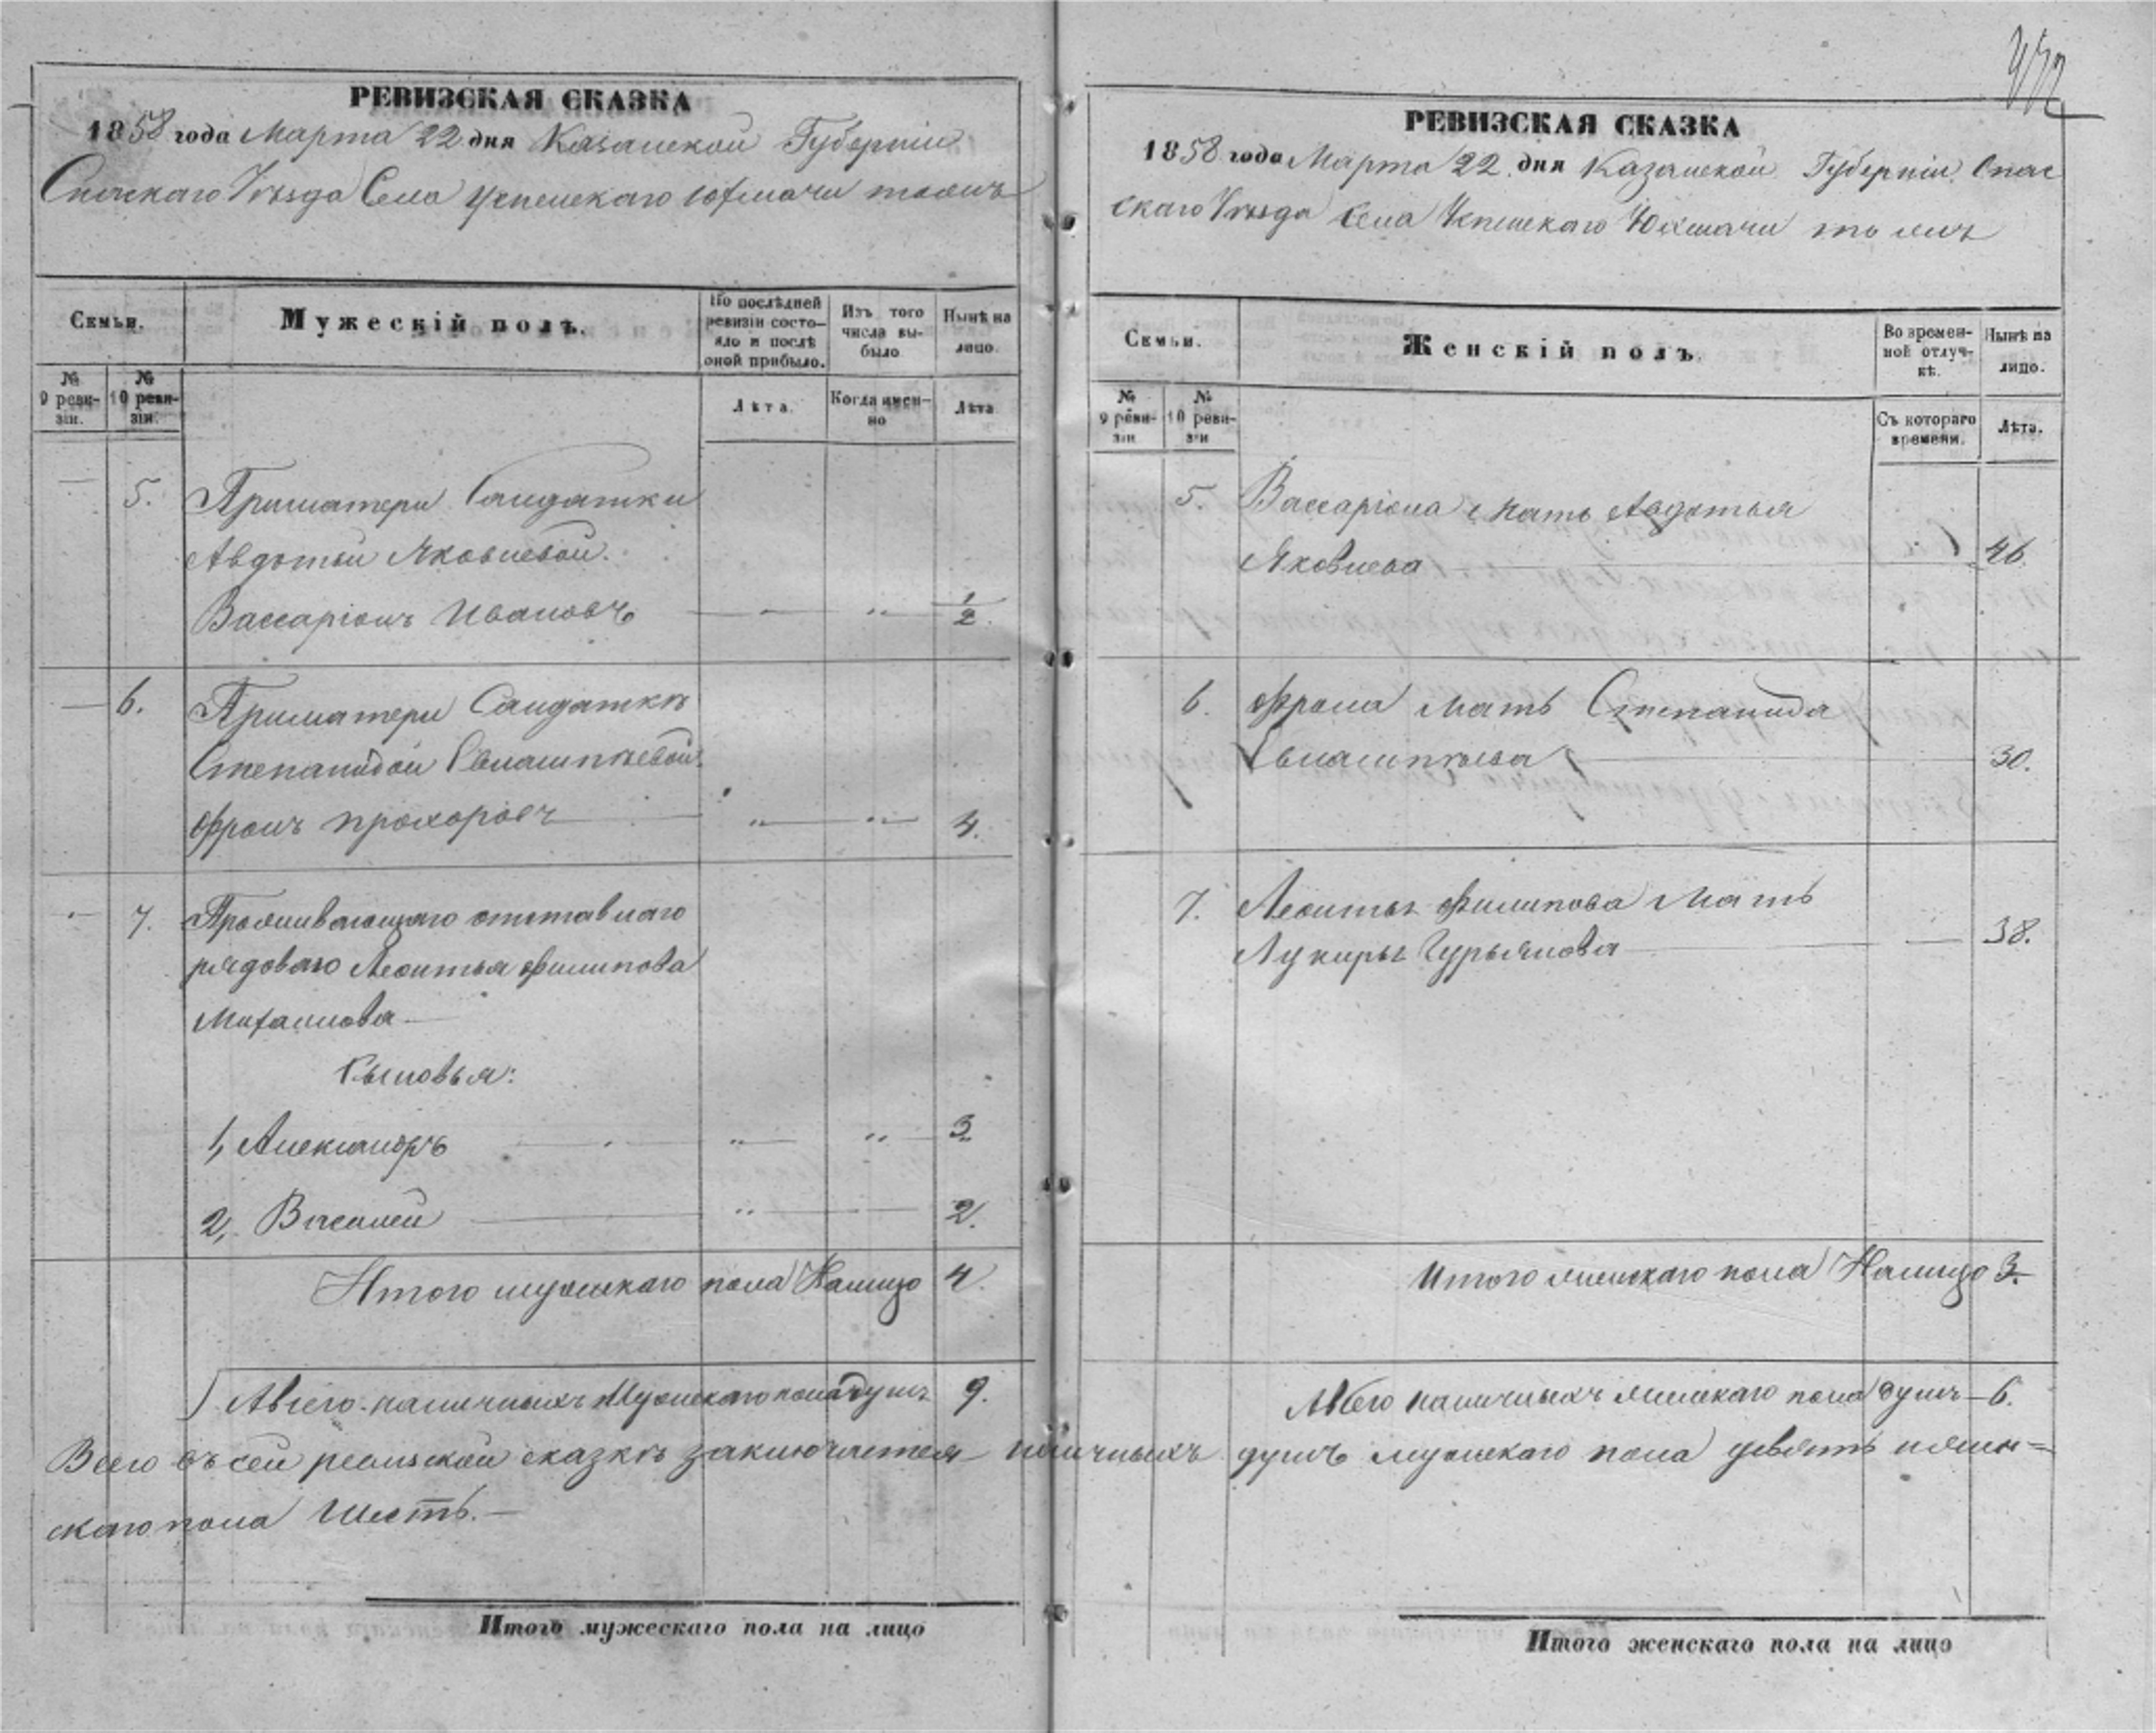 472
РЕВИЗСКАЯ СКАЗКА
1858 года Марта 22 дня Казанской Губерніи
Спаскаго Уѣзда Села Успенскаго Юхмачи тожъ
Семьи.
Мужескій полъ.
По послѣдней ревизіи состояло и послѣ оной прибыло.
Изъ того числа выбыло
Ныне на лицо.
№ 9 ревизіи.
№ 10 ревизіи.
Лѣта.
Когда именно
Лѣта
— 5. Приматери Салдатки
Авдотьи Яковлевой.
Вассаріонъ Ивановъ — — „ — 1/2
— 6. Приматери Салдаткѣ
Степанидой Евлампіевой
Фролъ Прохоровъ — „ — „ — 4.
— 7. Проживающаго отставнаго
рядоваго Леонтья Филипова
Михаилова —
Сыновья:
1, Александръ — „ — „ — 3
2, Василей — „ — — 2.
Итого мужскаго пола Налицо 4.
Авсего наличныхъ Мужскаго пола душъ 9.
РЕВИЗСКАЯ СКАЗКА
1858 года Марта 22 дня Казанской Губерніи Спас
скаго Уѣзда Села Успенскаго Юхмачи тожъ
Семьи.
Женскій полъ.
Во временной отлучкѣ.
Нынѣ на лицо.
№ 9 ревизіи
№ 10 ревизіи
Съ котораго времени.
Лѣта.
5. Вассаріона мать Авдотья
Яковлева — 46
6. Фрола Мать Степанида
Евлампіева — 30.
7. Леонтья Филипова Мать
Лукирья Гурьянова — — 38.
Итого женскаго пола Налицо 3.
Авсего наличныхъ женскаго пола душъ — 6.
Всего въ сей ревизской сказкѣ заключается наличныхъ душъ мужскаго пола девять и жен=
скаго пола шесть. —
Итого мужескаго пола на лицо
Итого женскаго пола на лицо